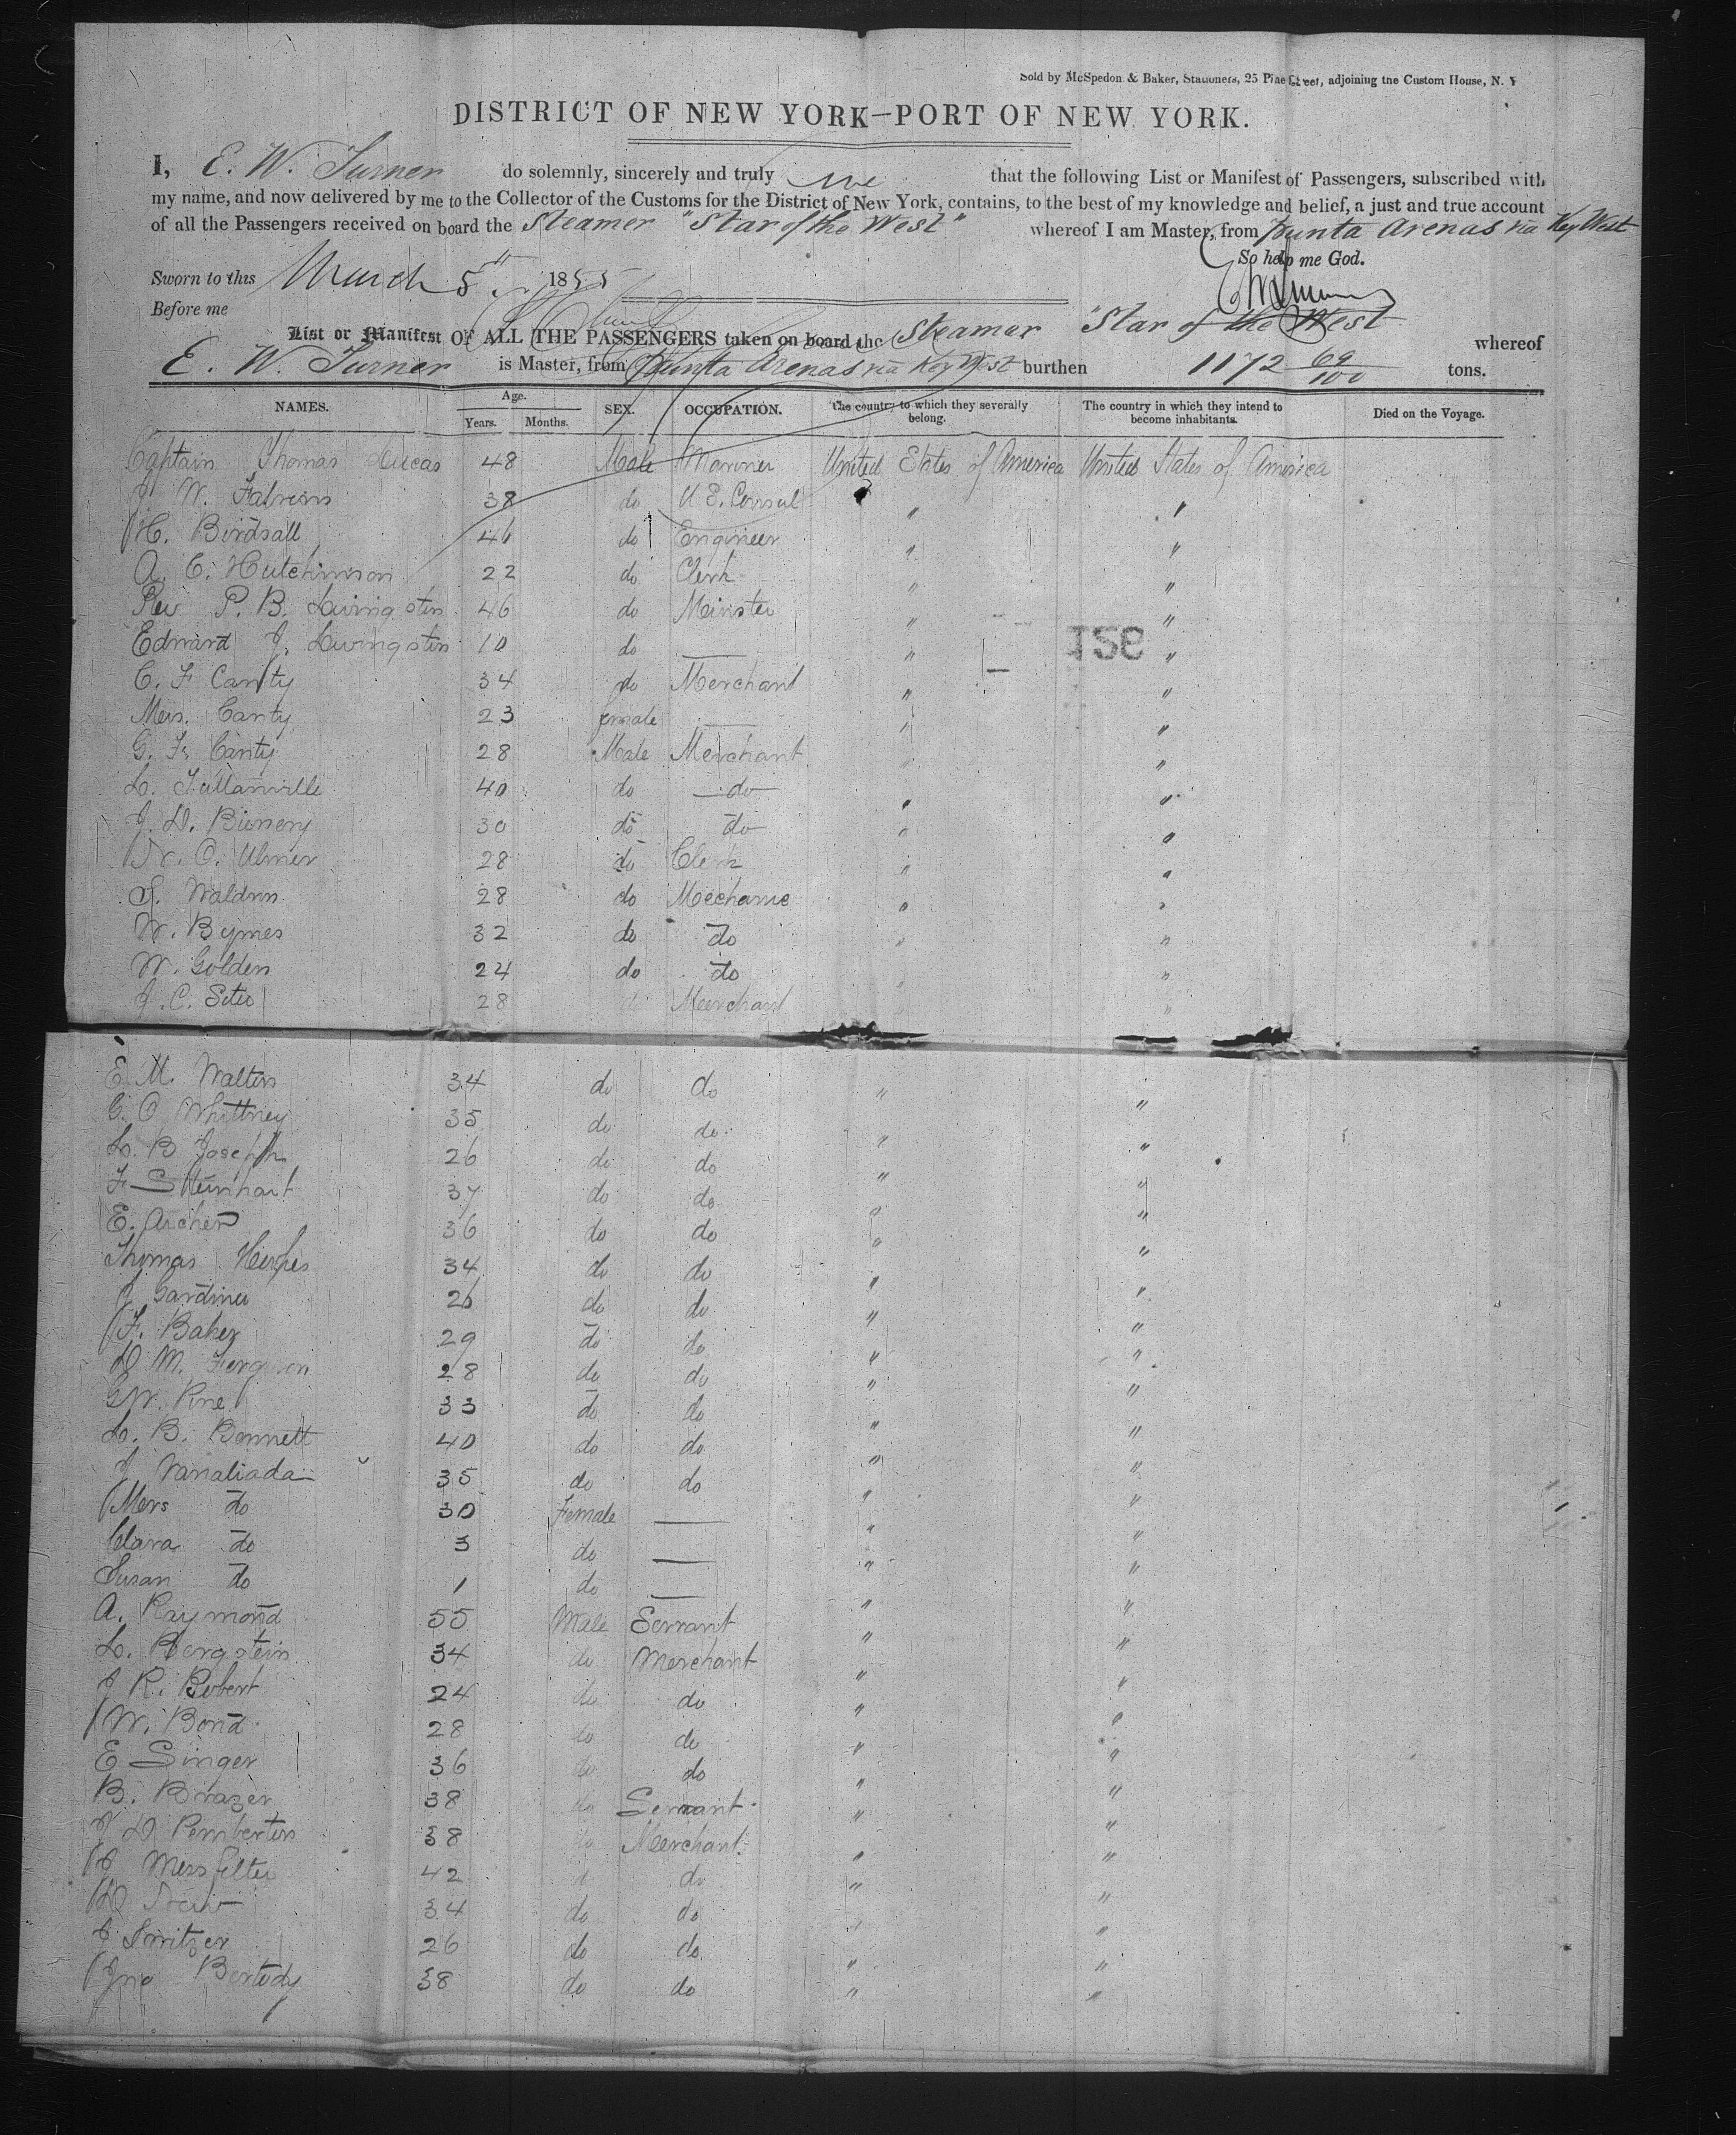 Sold by McSpedon & Baker, Stationers, 25 Pine Street, adjoining the Custom House, N. Y
DISTRICT OF NEW YORK—PORT OF NEW YORK.
I, E. W. Turner do solemnly, sincerely and truly that the following List or Manifest of Passengers, subscribed with
my name, and now delivered by me to the Collector of the Customs for the District of New York, contains, to the best of my knowledge and belief, a just and true account
of all the Passengers received on board the Steamer "Star of the West" whereof I am Master, from Punta Arenas via Key West
So help me God.
Sworn to this March 5th 1855
Before me
List or Manifest OF ALL THE PASSENGERS taken on board the Steamer "Star of the West whereof
E. W. Turner is Master, from Punta Arenas via Key West burthen 1172 69/100 tons.
NAMES. Age. Years. Months. SEX. OCCUPATION. The country to which they severally belong. The country in which they intend to become inhabitants. Died on the Voyage.
Captain Thomas Lucas 48 Male Marriner United States of America United States of America
J W. Fabrens 38 do U S. Consul " "
H. Birdsall 46 do Engineer " "
A. C. Hutchinson 22 do Clerk " "
Rev P. B. Livingston 46 do Minister " "
Edward J. Livingston 10 do — " "
129
C. F Canty 34 do Merchant " "
Mrs. Canty 23 female — " "
G. F. Canty 28 Male Merchant " "
L. 40 do do " "
J. D. 30 do do " "
Ulmer 28 do Clerk " "
Waldron 28 do Mechanic " "
W. Byrnes 32 do do " "
W. Golden 24 do do " "
J. C. 28 Merchant " "
E M. Walters 34 do do " "
G. O Whittney 35 do do " "
L. B Joseph 26 do do " "
F Steinhart 37 do do " "
E. Archer 36 do do " "
Thomas 34 do do " "
J Gardiner 26 do do " "
F. Baker 29 do do " "
D M. Ferguson 28 do do " "
G W. Pine 33 do do " "
L. B. Bennett 40 do do " "
J Vanaliada 35 do do " "
Mrs do 30 Female — " "
Clara do 3 do — " "
Susan do 1 do — " "
A. Raymond 55 Male Servant " "
L. Bergstein 34 do Merchant " "
J R. Robert 24 do do " "
W. Bond 28 do do " "
E Singer 36 do do " "
B. Brazer 38 do Servant " "
J D Pemberton 38 do Merchant " "
J 42 do " "
D 34 do do " "
J Switzer 26 do do " "
Jno Bertody 38 do do " "